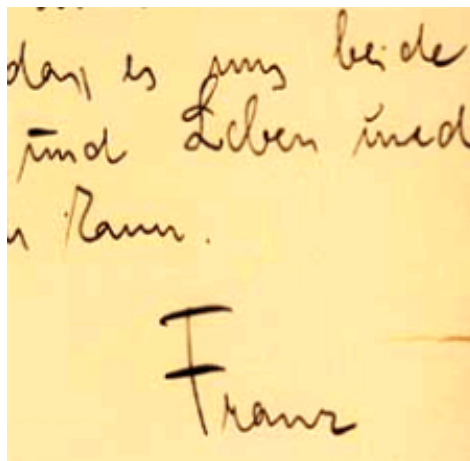 dass es uns beide
und Leben und
Kann.
Franz